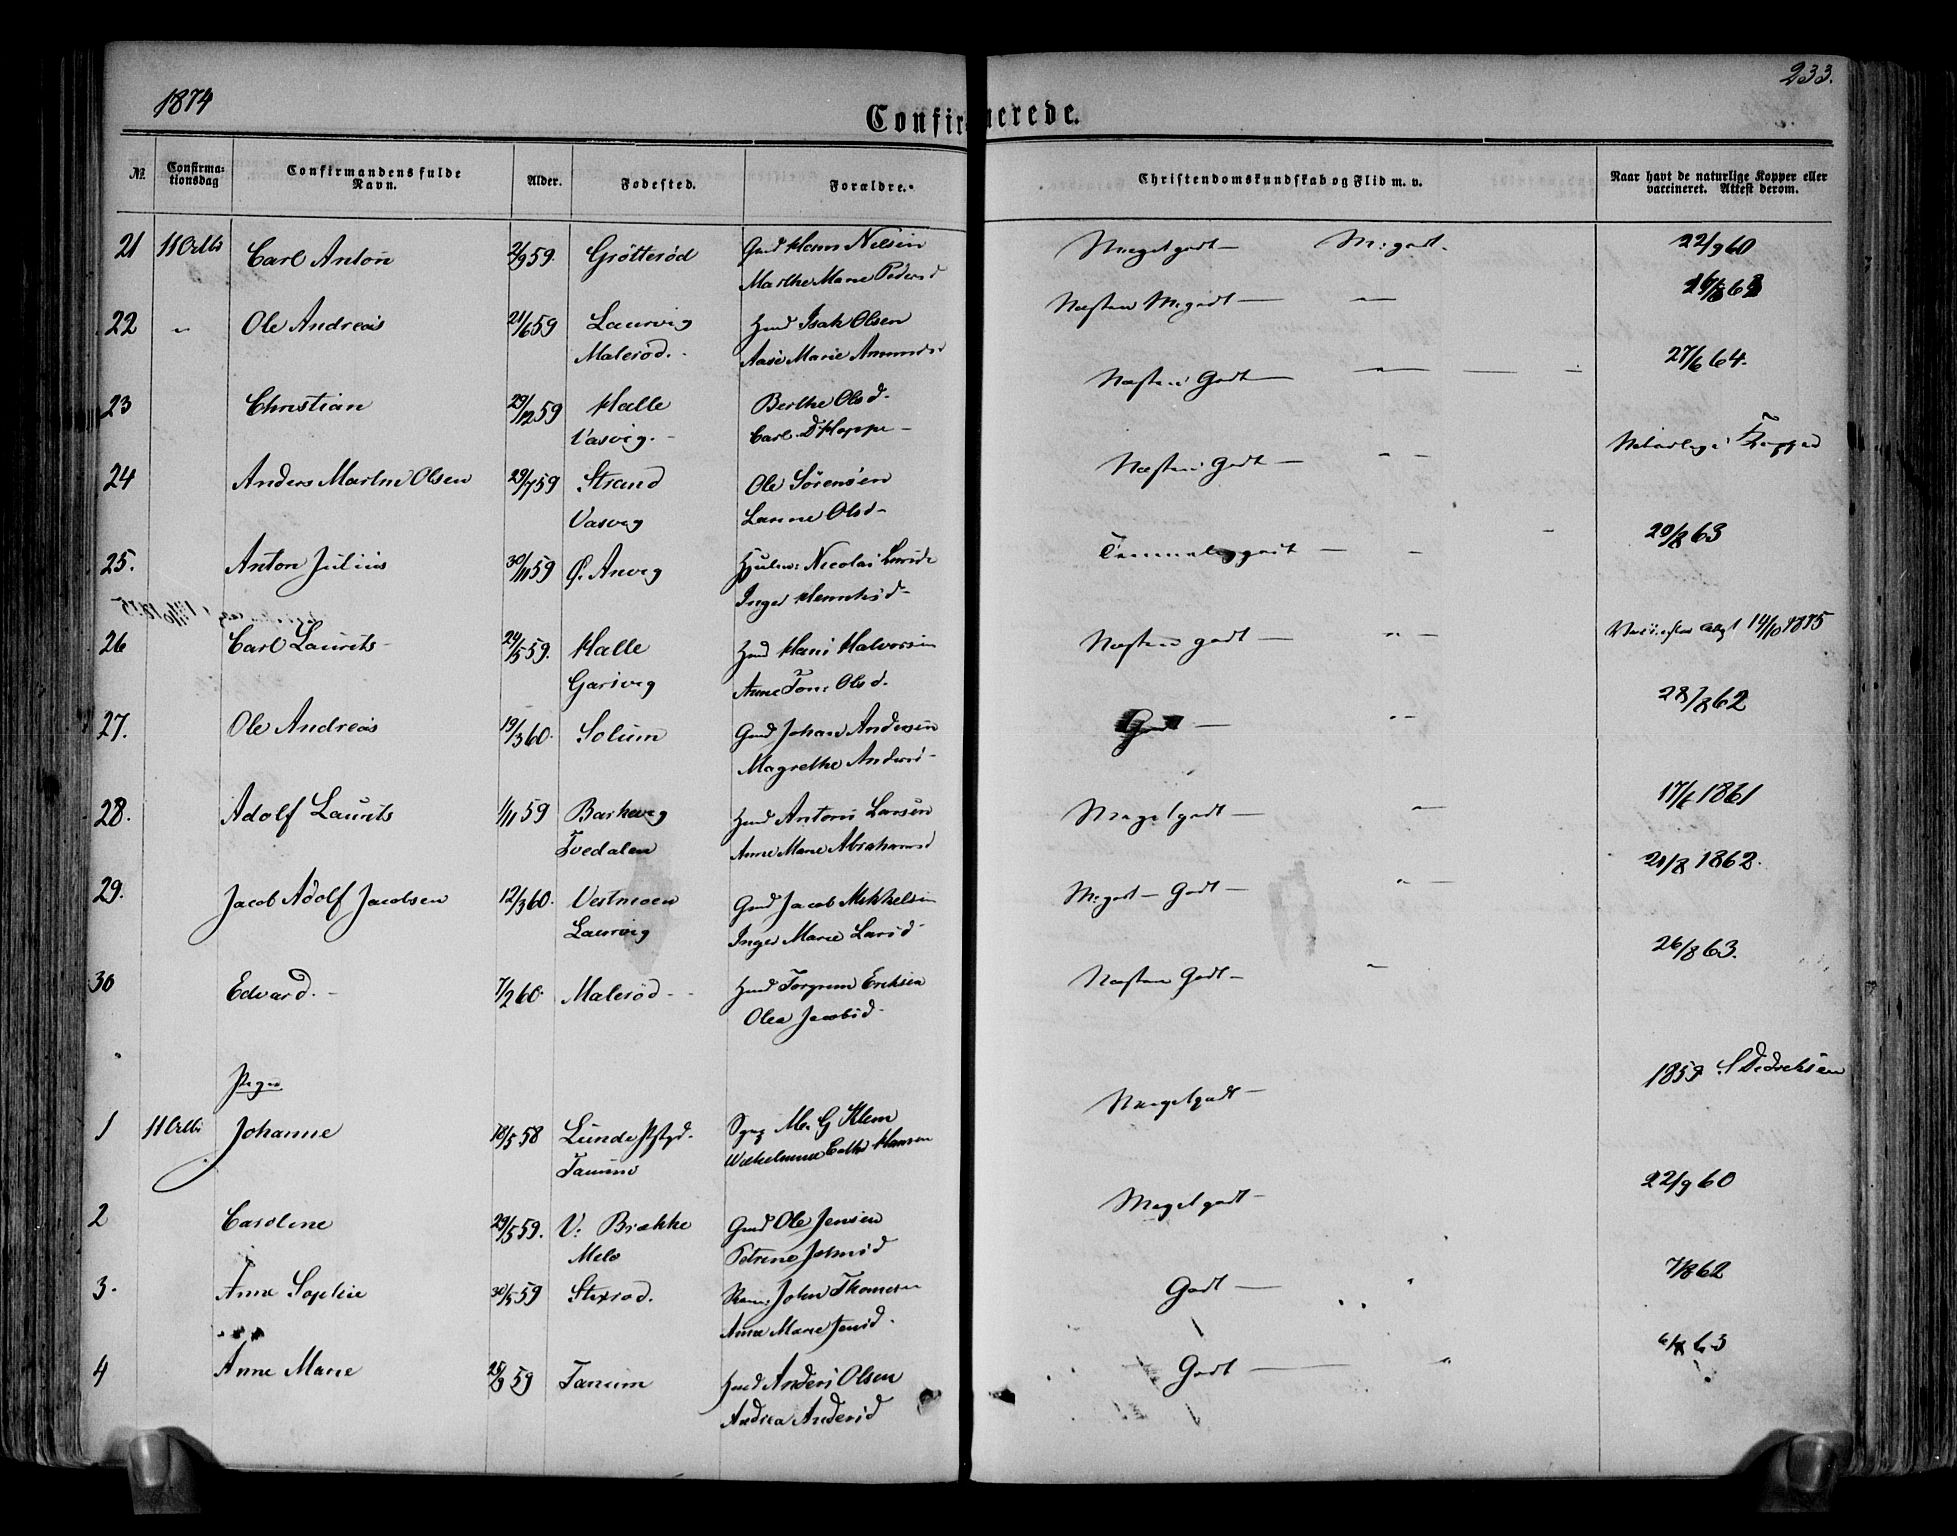 1874
233.
Confirmerede.
No. Confirma-tionsdag Confirmandens fulde Navn. Alder. Fødested. Forældre. Christendomskundskab og Flid m. v. Naar havt de naturlige Kopper eller vaccineret. Attest derom.
21 11 Octbr Carl Anton 2/9 59. Grøtterød Gmd Hans Nielsen Meget godt — M: godt. 22/9 60
Marthe Marie Pedersd
22 „ Ole Andreas 21/6 59 Laurvig Hmd Isak Olsen Næsten M. godt —
Malerød. Aase Marie
23 Christian 29/12 59 Halle Berthe Olsd. Næsten Godt — 27/6 64.
Vasvig. Carl D Hoppe
24 Anders Martin Olsen 29/7 59 Strand Ole Sörensen Næsten Godt — Naturlige Kopper
Vasvig Olsd
25. Anton Julius 30/11 59 Ø. Anvig Nicolai Temmelig godt — 20/8 63
Inger
26 Carl Laurits 24/5 59. Halle Hmd Hans Halvorsen Næsten godt — 14/10 1875
Anne Olsd.
27. Ole Andreas 19/3 60. Solum Gmd Johan Andersen Godt — 28/8 62
Magrethe Andersd
28. Adolf Laurits 1/11 59 Barkevig Hmd Anton Larsen Meget godt — 17/6 1861
Tvedalen Anne Marie Abrahamsd
29. Jacob Adolf Jacobsen 12/3 60. Vestmoen Gmd Jacob Mikkelsen M. godt — Godt — 21/8 1862.
Laurvig Inger Marie Larsd
30 Edvard. 7/2 60. Malerød Hmd Torgrim Eriksen Næsten Godt — 26/8 63.
Olea Jacobsd
Piger
1 11 Octbr Johanne 18/5 58 Lunde Pstgd. M. G Klem Meget godt — 1859 S Didriksen
Tanum Hansen
2 Caroline 29/5 59. V. Brække Gmd Ole Jensen Meget godt — 22/9 60
Melø Petrine Johnsd
3. Anne Sophie 30/5 59 Stixrød. John Thomesen Godt — 7/8 62
Anne Marie Jensd
4 Anne Marie 25/9 59 Tanum Hmd Anders Olsen Godt —
Andrea Andersd